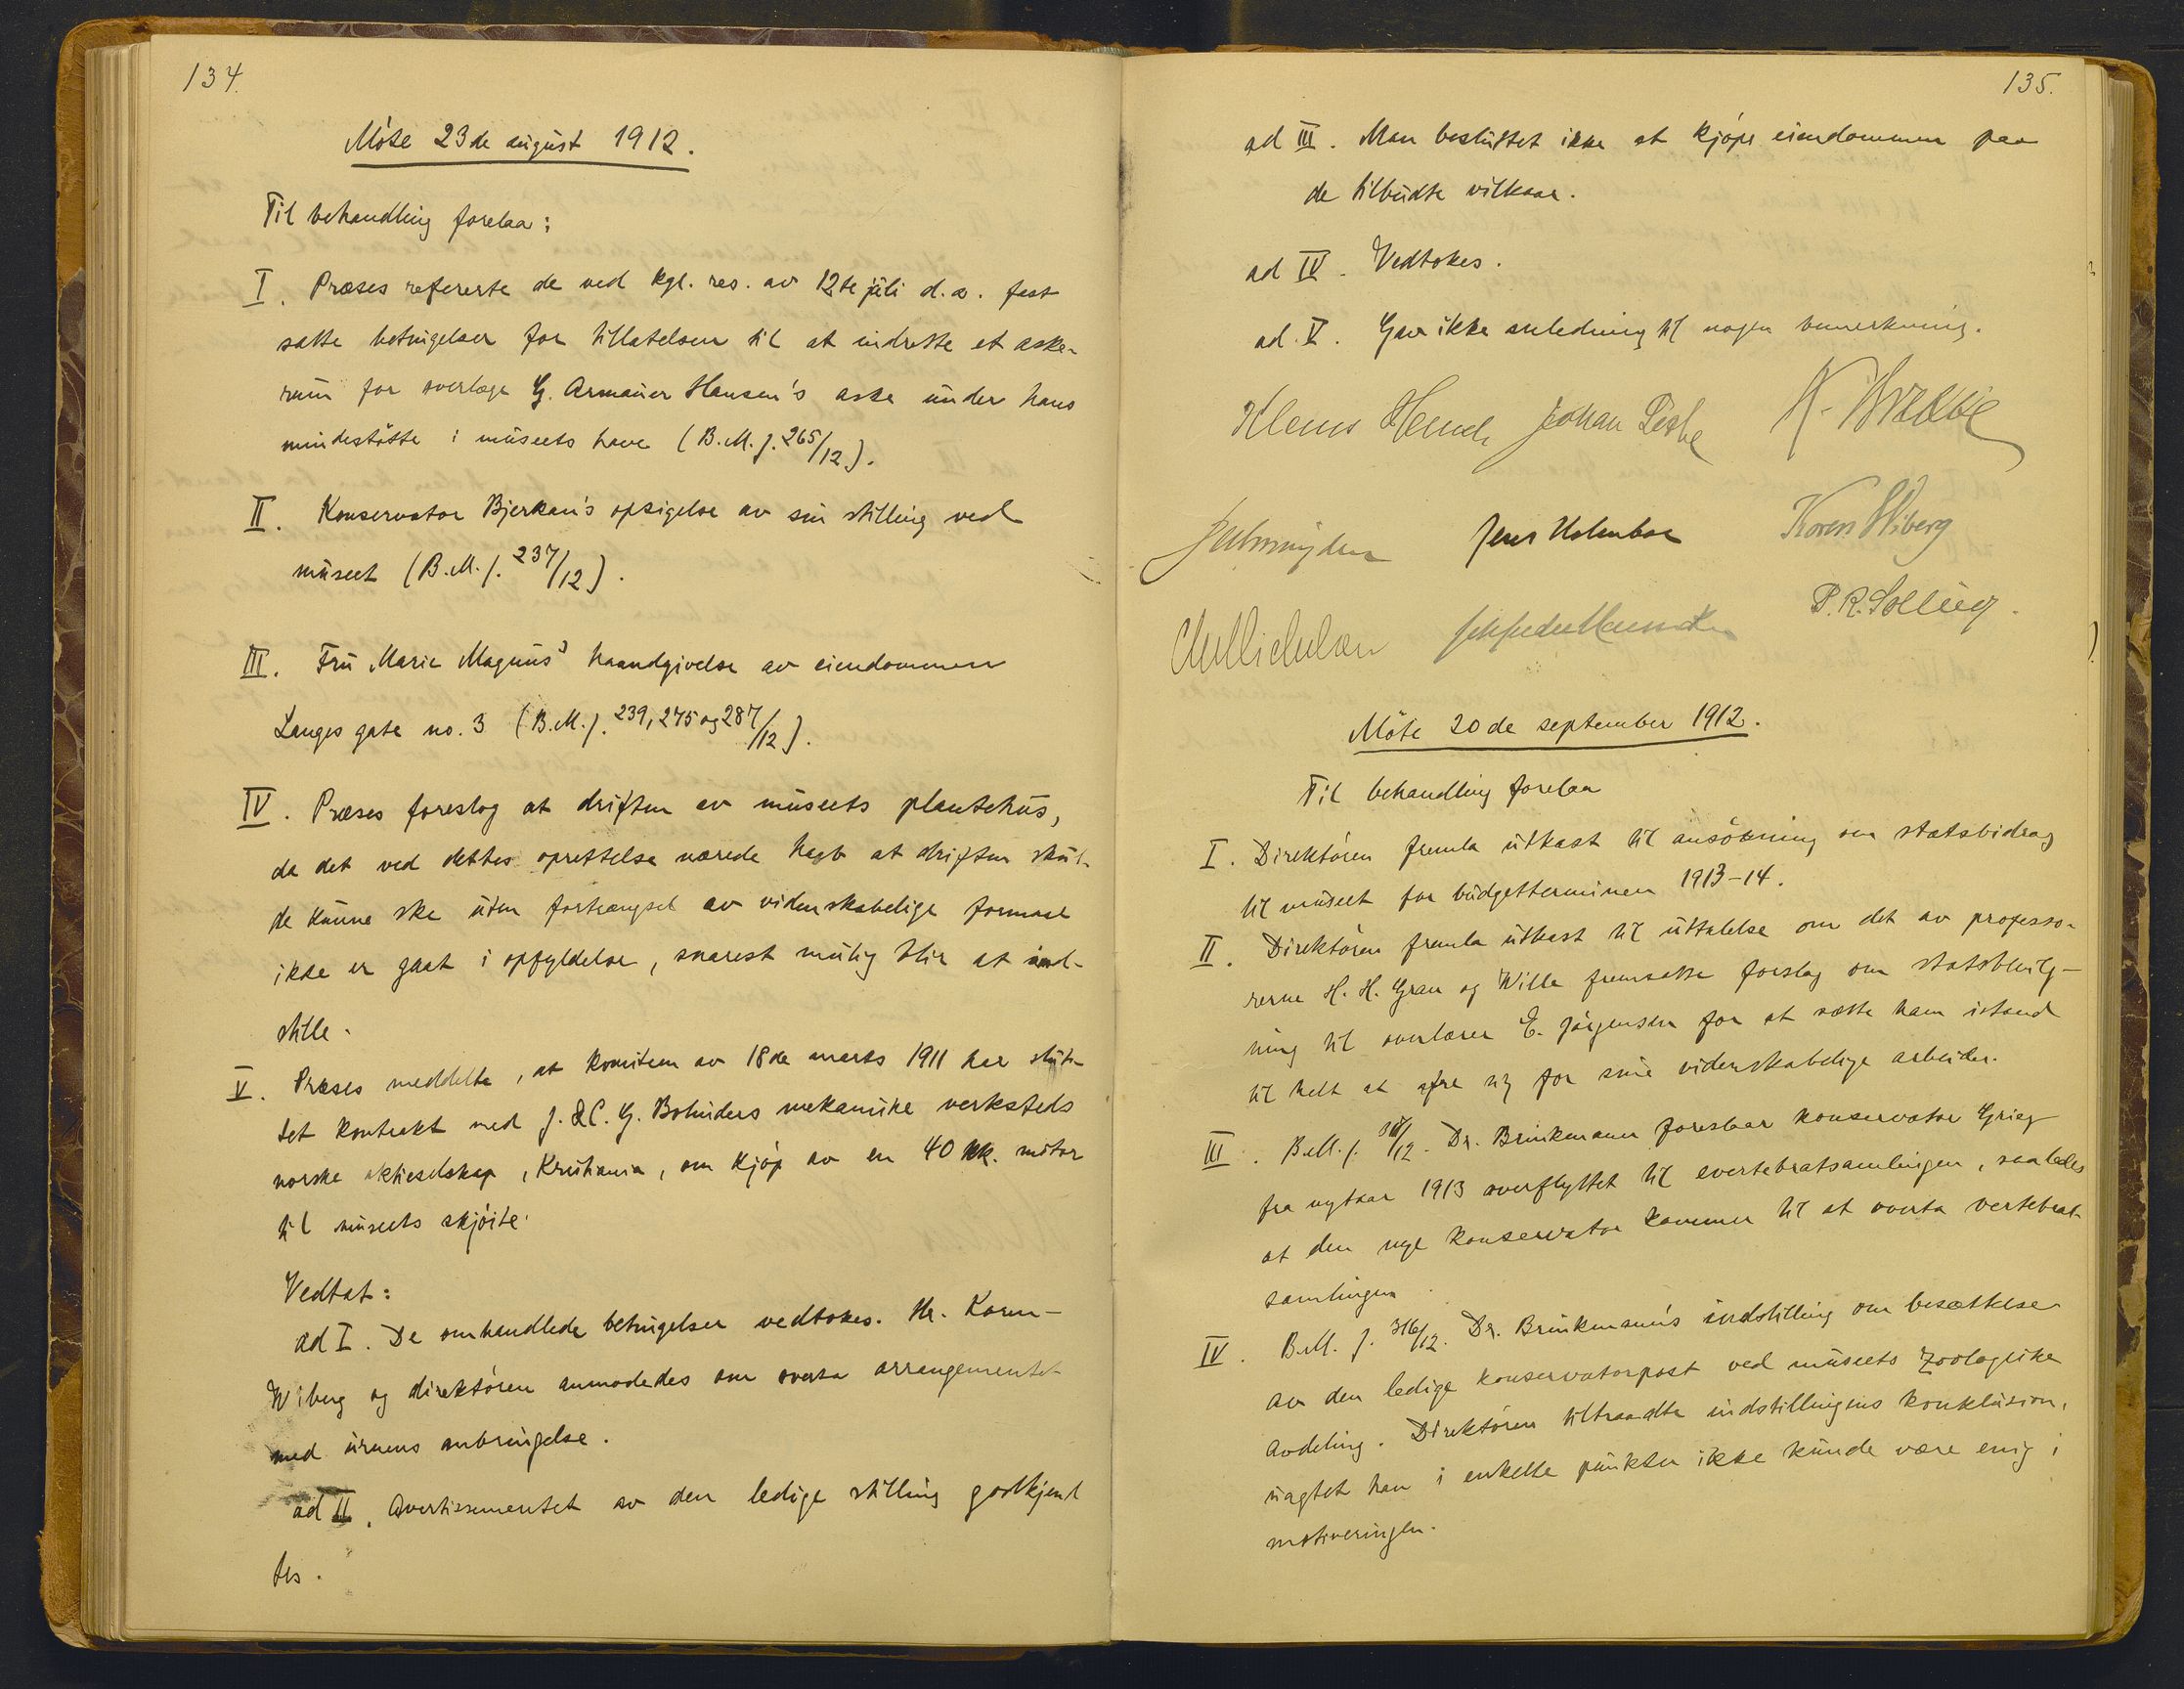 134.
Möte 23de august 1912.
Til behandling forelaa:
I. Præses refererte de ved kgl. res. av 12te juli d.a. fast
satte betingelser for tillatelsen til at indrette et aske-
rum for overlæge G. Armauer Hansen's aske under hans
mindestötte i museets have (B.M.J. 265/12).
II. Konservator Bjerkan's opsigelse av sin stilling ved
museet (B.M.J. 237/12).
III. Fru Marie Magnus' haandgivelse av eiendommen
Langes gate no. 3 (B.M.J. 239, 275 og 287/12).
IV. Præses foreslog at driften av museets plantehus,
da det ved dettes oprettelse nærede haab at driften skul-
de kunne ske uten fortrængsel av videnskabelige formaal
ikke er gaat i opfyldelse, snarest mulig blir at ind-
stille.
V. Præses meddelte, at komiteen av 18de marts 1911 har slut-
tet kontrakt med J. & C. G. Bolinders mekaniske verksteds
norske aktieselskap, Kristiania, om kjöp av en 40 HK. motor
til museets skjöite.
Vedtat:
ad I. De omhandlede betingelser vedtokes. Hr. Koren-
Wiberg og direktören anmodedes om overta arrangementet
med urnens anbringelse.
ad II. Avertissementet av den ledige stilling godkjend
tes.
135.
ad III. Man besluttet ikke at kjöpe eiendommen paa
de tilbudte vilkaar.
ad IV. Vedtokes.
ad. V. Gav ikke anledning til nogen bemerkning.
Klaus Johan
Jens Holmboe Koren Wiberg
P. R. Sollied.
Möte 20de september 1912.
Til behandling forelaa
I. Direktören fremla utkast til ansökning om statsbidrag
til museet for budgetterminen 1913-14.
II. Direktören fremla utkast til uttalelse om det av professo-
rerne H. H. Gran og Wille fremsatte forslag om statsbevilg-
ning til overlærer E. Jörgensen for at sætte ham istand
til helt at ofre sig for sine videnskabelige arbeider.
III. B.M.J. Dr. Brinkmann foreslaar konservator Grieg
fra nytaar 1913 overflyttet til evertebratsamlingen, saaledes
at den nye konservator kommer til at overta vertebrat-
samlingen.
IV. B.M. J. 316/12. Dr. Brinkmann's indstilling om besættelse
av den ledige konservatorpost ved museets zoologiske
avdeling. Direktören tiltraadte indstillingens konklusion,
uagtet han i enkelte punkter ikke kunde være enig i
motiveringen.